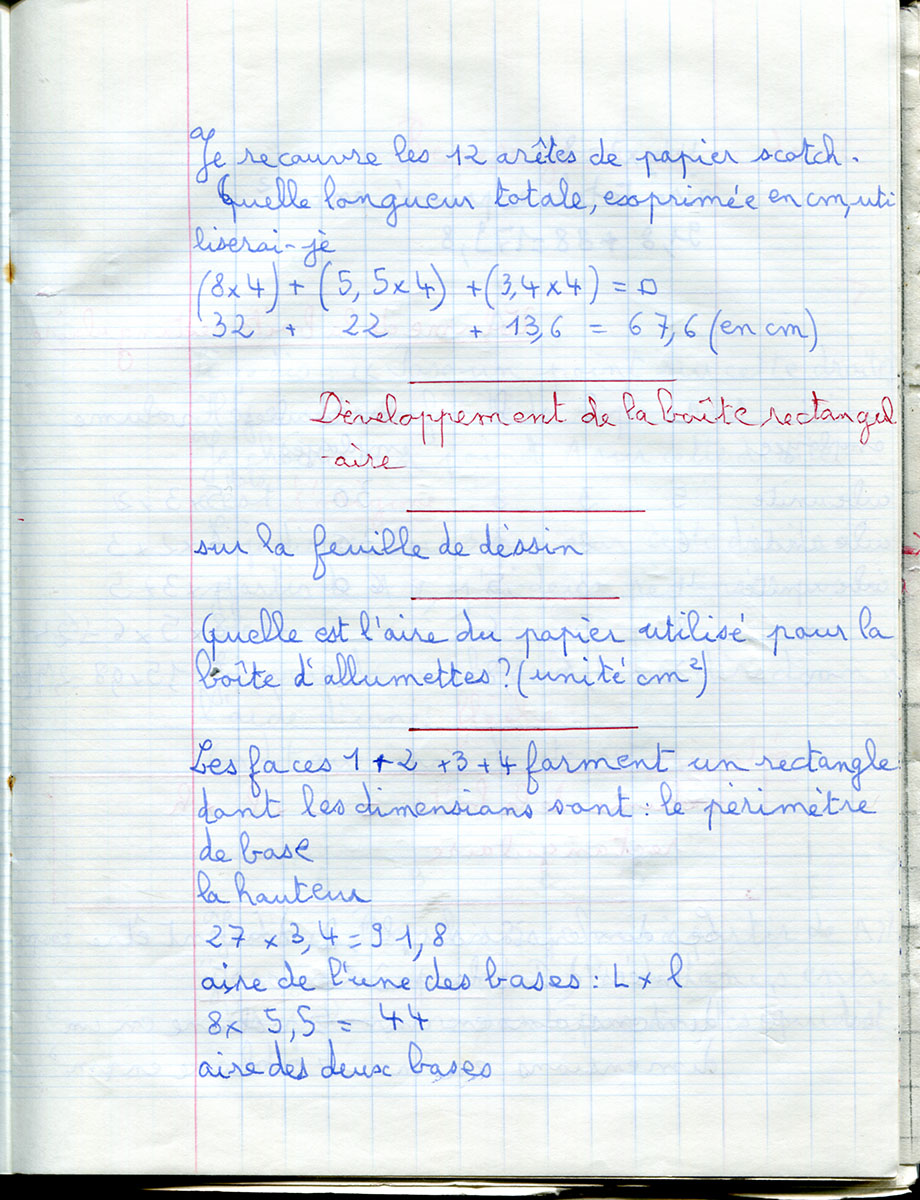 a)
Je recouvre les 12 arêtes de papier scotch.
Quelle longueur totale, exprimée en cm, uti
liserai-je
(8x4) + (5,5x4) + (3,4x4) = □
32 + 22 + 13,6 = 67,6 (en cm)
Développement de la boîte rectangul
-aire
sur la feuille de dessin
Quelle est l'aire du papier utilisé pour la
boîte d'allumettes? (unité cm²)
Les faces 1 + 2 + 3 + 4 forment un rectangle
dont les dimensions sont : le périmètre
de base
la hauteur
27 x 3,4 = 91,8
aire de l'une des bases : L x l
8x 5,5 = 44
aire des deux bases